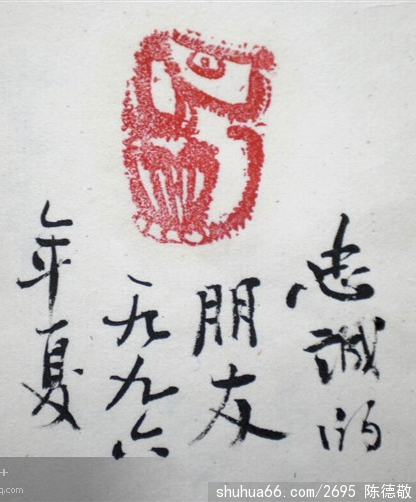 忠誠的
朋友
一九九六
年夏
shuhua66.com/2695 陈德敬